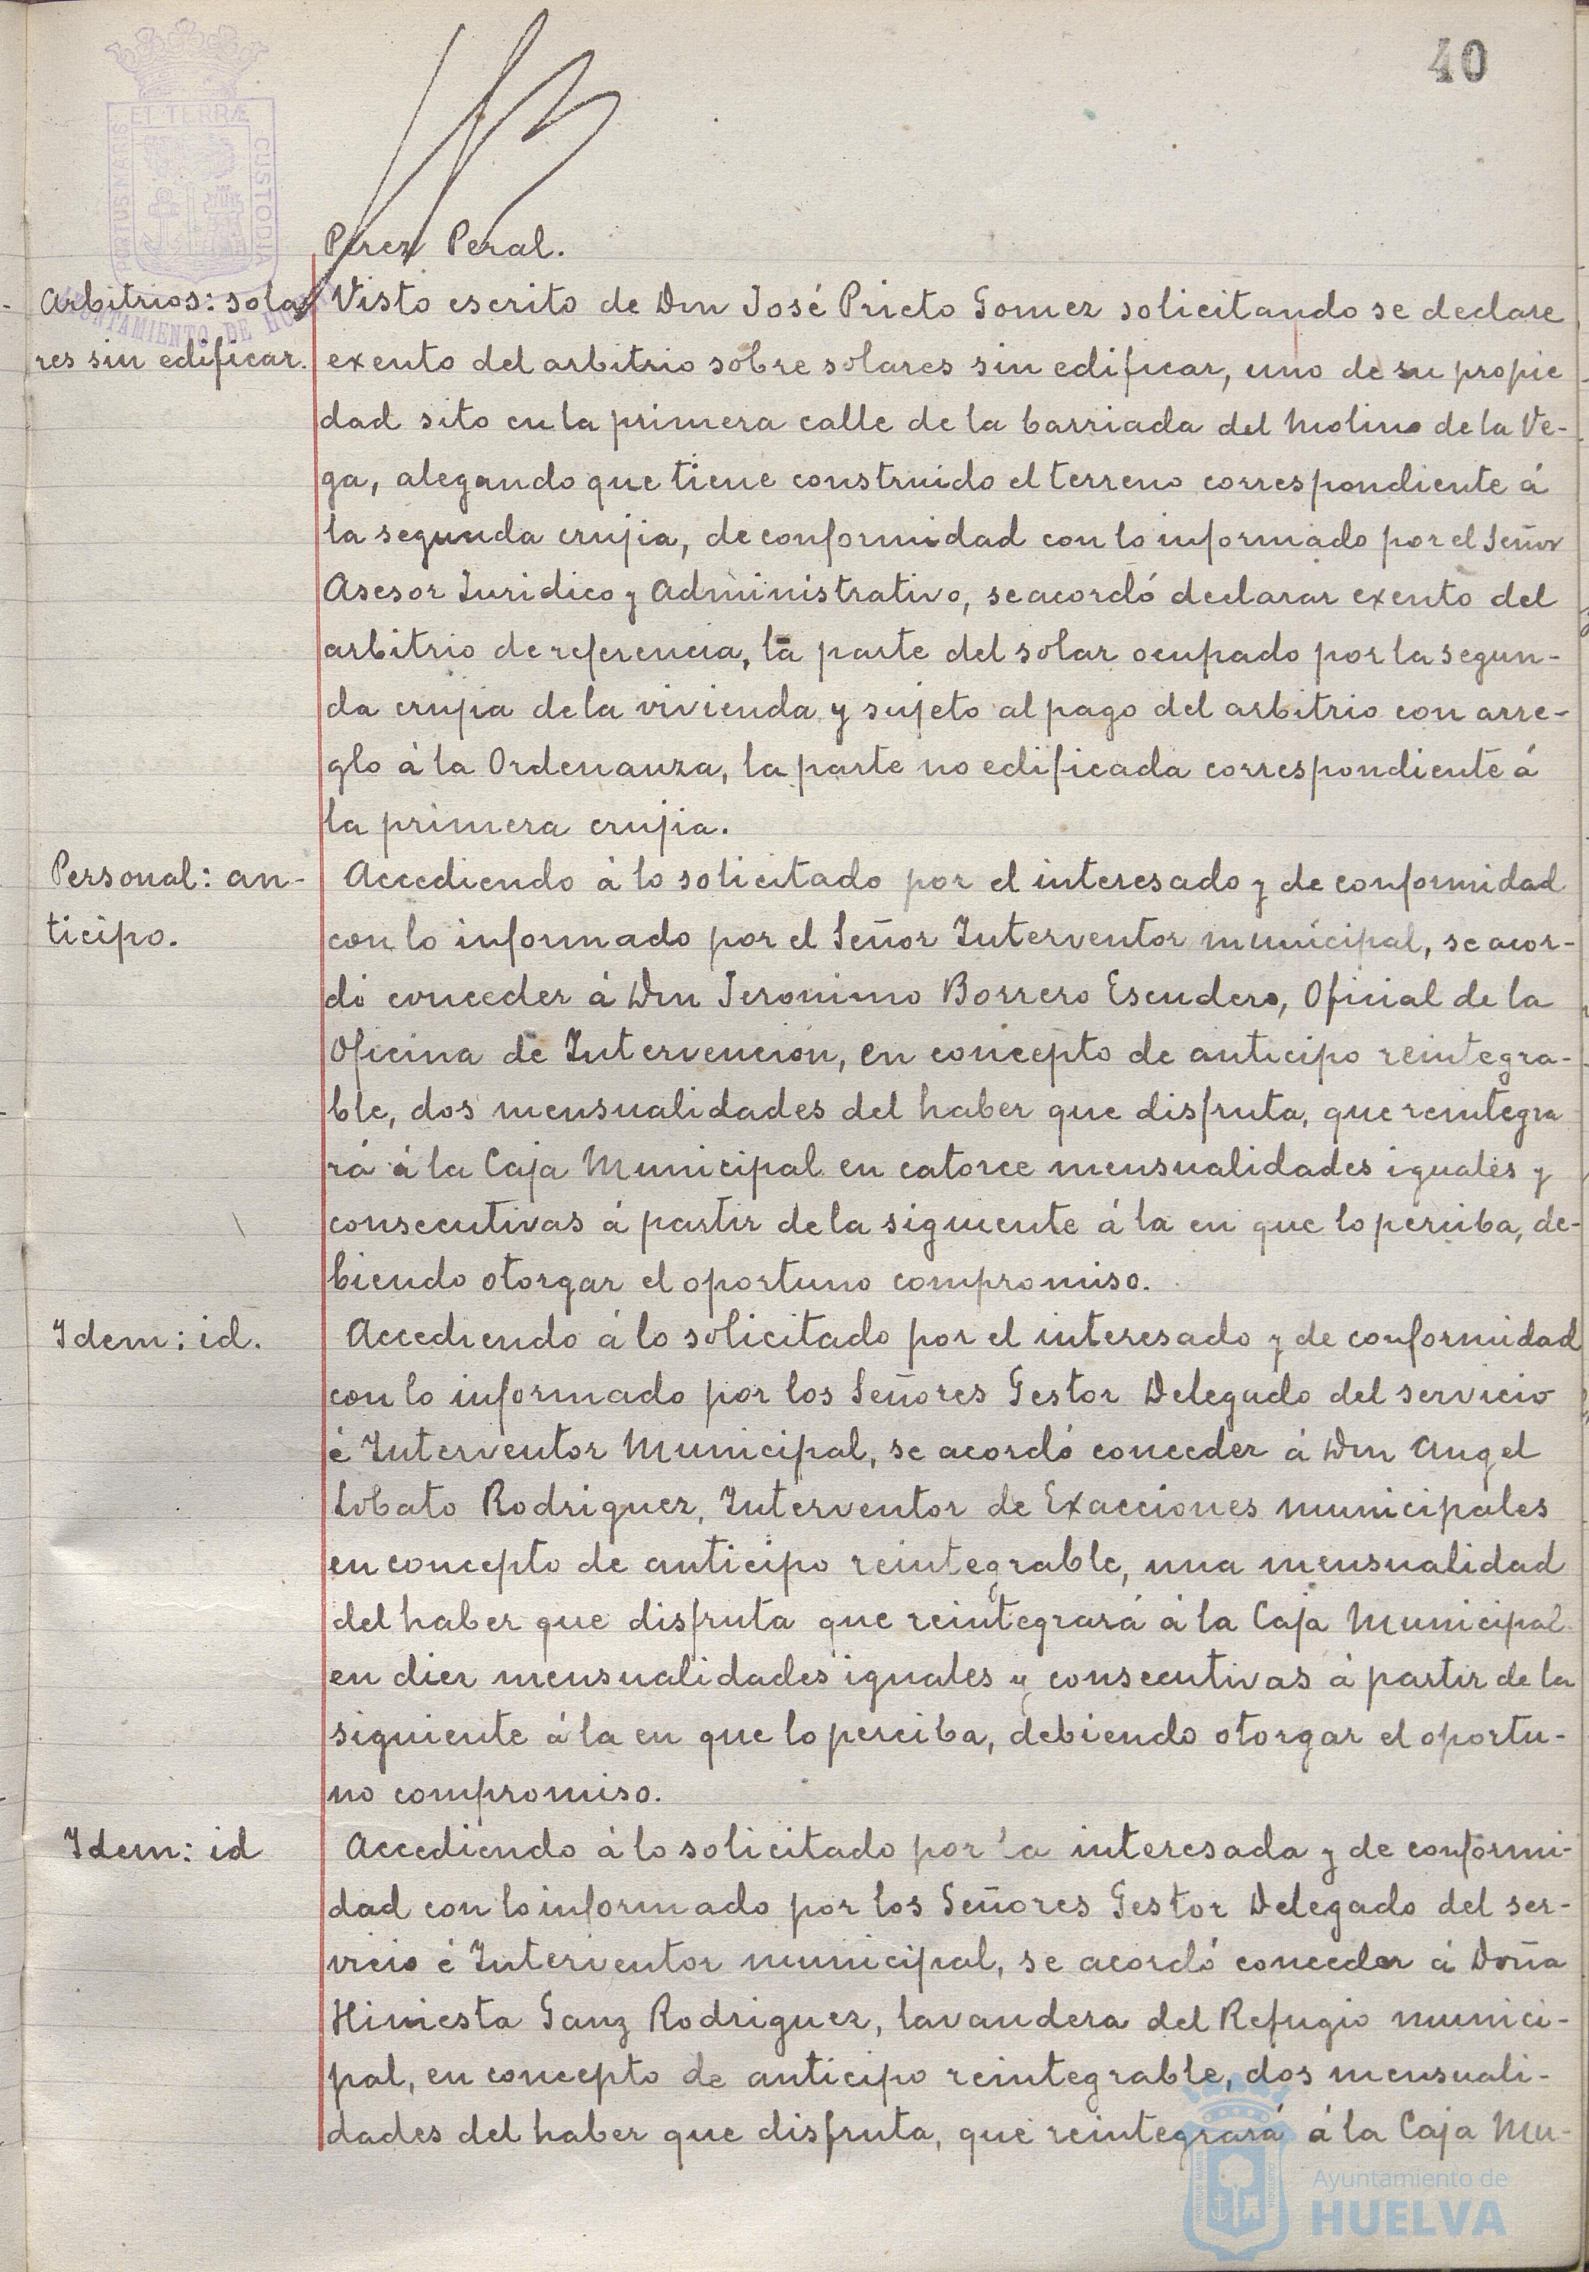 40
PORTUS MARIS
ET TERRÆ
CUSTODIA
AYUNTAMIENTO DE HUELVA
Perez Peral.
Arbitrios: sola
res sin edificar.
Visto escrito de Don José Prieto Gomez solicitando se declare
exento del arbitrio sobre solares sin edificar, uno de su propie
dad sito en la primera calle de la barriada del Molino de la Ve-
ga, alegando que tiene construido el terreno correspondiente á
la segunda crujia, de conformidad con lo informado por el Señor
Asesor Juridico y Administrativo, se acordó declarar exento del
arbitrio de referencia, la parte del solar ocupado por la segun-
da crujia de la vivienda y sujeto al pago del arbitrio con arre-
glo á la Ordenanza, la parte no edificada correspondiente á
la primera crujia.
Personal: an-
ticipo.
Accediendo á lo solicitado por el interesado y de conformidad
con lo informado por el Señor Interventor municipal, se acor-
dó conceder á Don Jeronimo Borrero Escudero, Oficial de la
Oficina de Intervención, en concepto de anticipo reintegra-
ble, dos mensualidades del haber que disfruta, que reintegra
rá á la Caja Municipal en catorce mensualidades iguales y
consecutivas á partir de la siguiente á la en que lo perciba, de-
biendo otorgar el oportuno compromiso.
Idem: id.
Accediendo á lo solicitado por el interesado y de conformidad
con lo informado por los Señores Gestor Delegado del servicio
é Interventor Municipal, se acordó conceder á Don Angel
Lobato Rodriguez, Interventor de Exacciones municipales
en concepto de anticipo reintegrable, una mensualidad
del haber que disfruta que reintegrará á la Caja Municipal
en diez mensualidades iguales y consecutivas á partir de la
siguiente á la en que lo perciba, debiendo otorgar el oportu-
no compromiso.
Idem: id
Accediendo á lo solicitado por la interesada y de conformi-
dad con lo informado por los Señores Gestor Delegado del ser-
vicio é Interventor municipal, se acordó conceder á Doña
Hiniesta Ganz Rodriguez, lavandera del Refugio munici-
pal, en concepto de anticipo reintegrable, dos mensuali-
dades del haber que disfruta, que reintegrará á la Caja Mu-
Ayuntamiento de
HUELVA